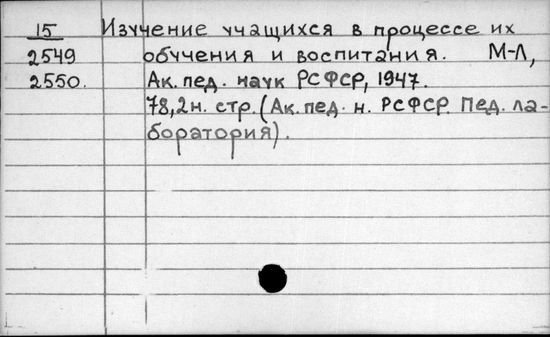 15 Изучение учащихся в процессе их
2549 обучения и воспитания. М-Л,
2550. Ак. пед. наук РСФСР, 1947.
78, 2н. стр. (Ак. пед. н. РСФСР. Пед. ла-
боратория).